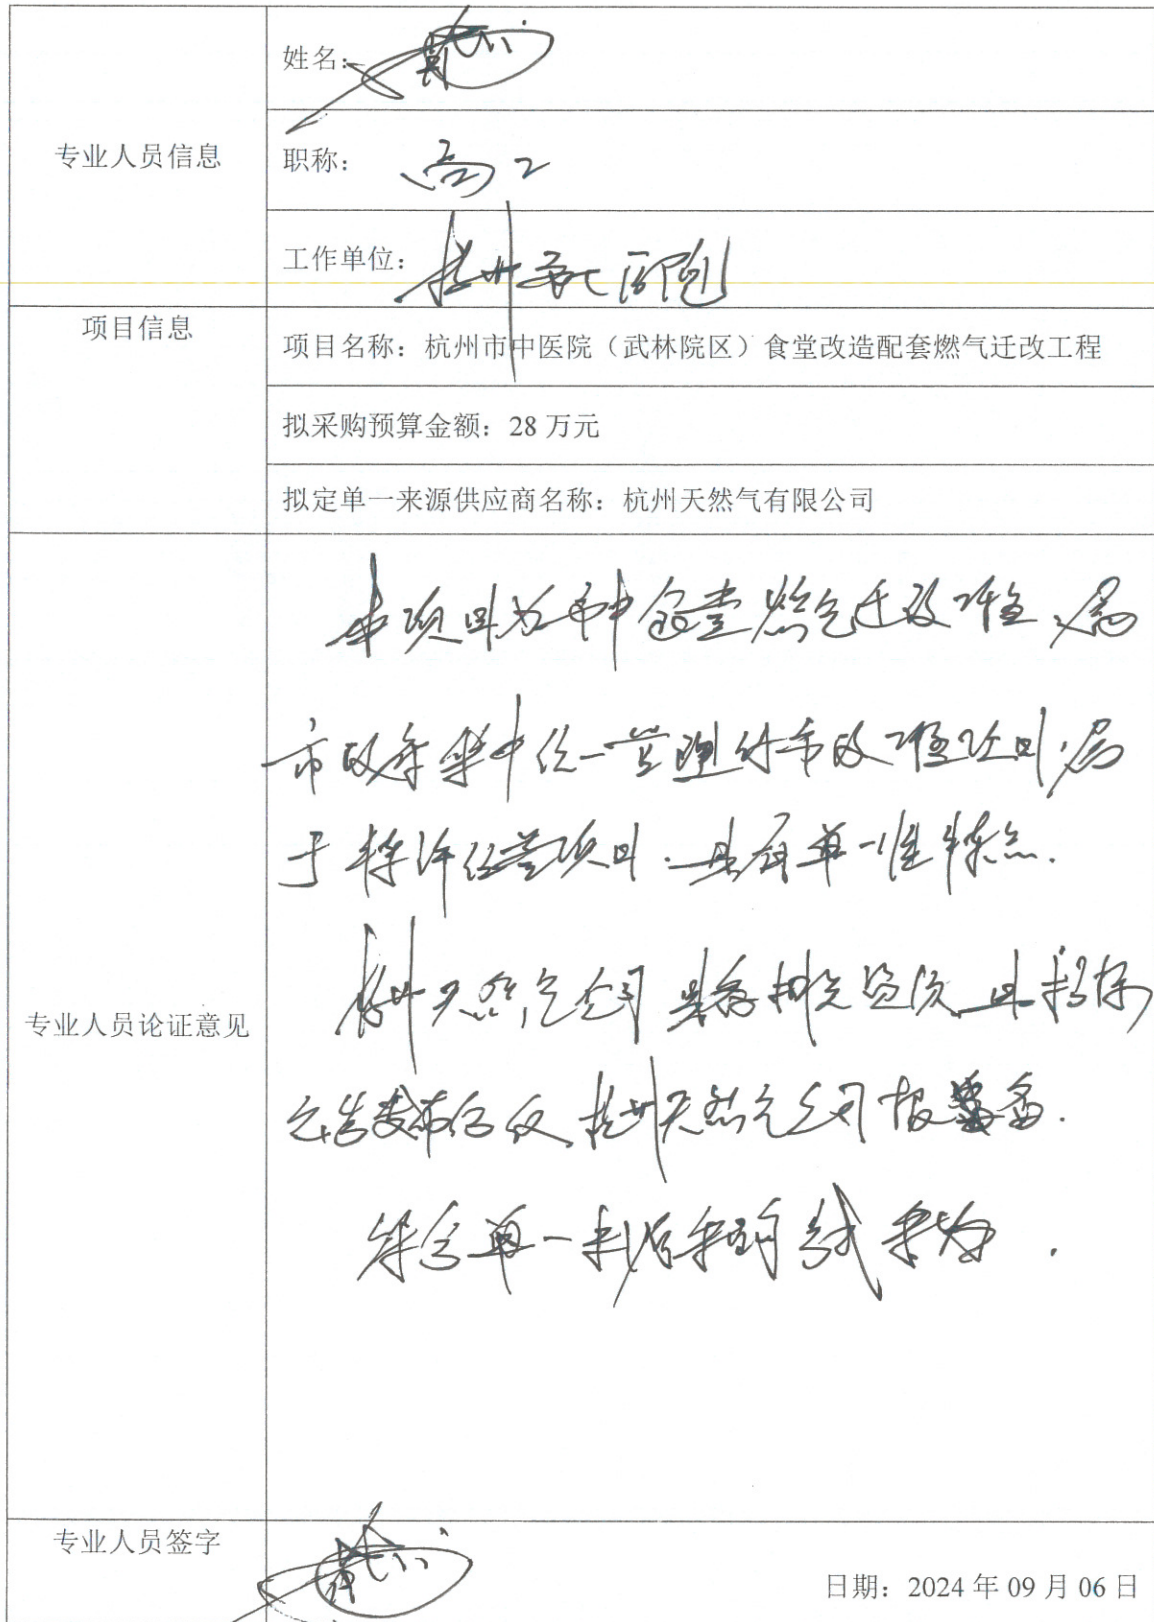 专业人员信息
姓名：
职称：高工
工作单位：杭州市七医院
项目信息
项目名称：杭州市中医院（武林院区）食堂改造配套燃气迁改工程
拟采购预算金额：28 万元
拟定单一来源供应商名称：杭州天然气有限公司
专业人员论证意见
本项目为市中食堂燃气迁改工程，属
市政集中统一管理的市政工程项目，属
于特许经营项目，具有单一性特点.
杭州天然气公司具有相关资质，且招标
公告发布后仅杭州天然气公司报
符合单一来源采购方式条件.
专业人员签字
日期：2024 年 09 月 06 日